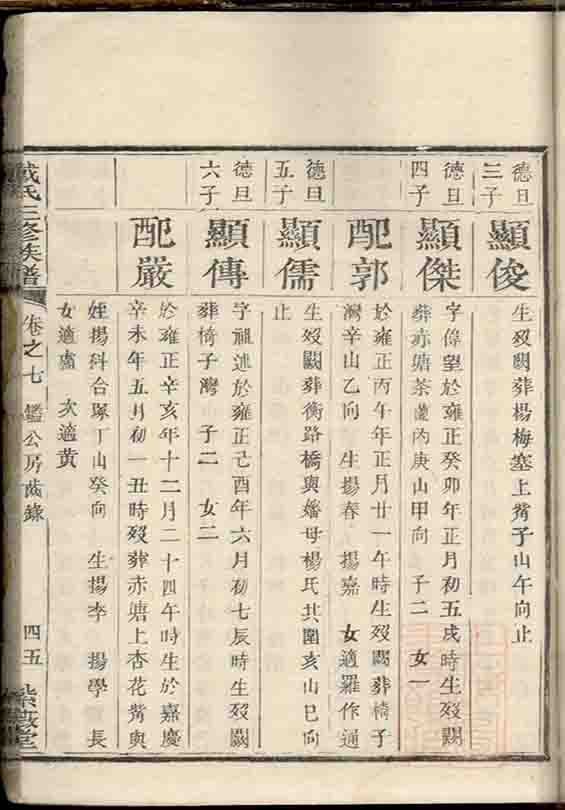 德旦
三子
顯俊
生歿闕葬楊梅塞上背子山午向止
德旦
四子
顯傑
字偉望於雍正癸卯年正月初五戌時生歿闕
葬赤塘茶蘭內庚山甲向 子二 女一
配郭
於雍正丙午年正月廿一午時生歿闕葬椅子
灣辛山乙向 生揚春 揚嘉 女適羅作通
德旦
五子
顯儒
生歿闕葬衡路橋與嬸母楊氏共圍亥山巳向
止
德旦
六子
顯傳
字祖述於雍正己酉年六月初七辰時生歿闕
葬椅子灣 子二 女二
配嚴
於雍正辛亥年十二月二十四午時生於嘉慶
辛未年五月初一丑時歿葬赤塘上杏花背與
姪揚科合墓丁山癸向 生揚李 揚學 長
女適盧 次適黃
戴氏三修族譜 卷之七 公房齒錄 四五 紫薇堂